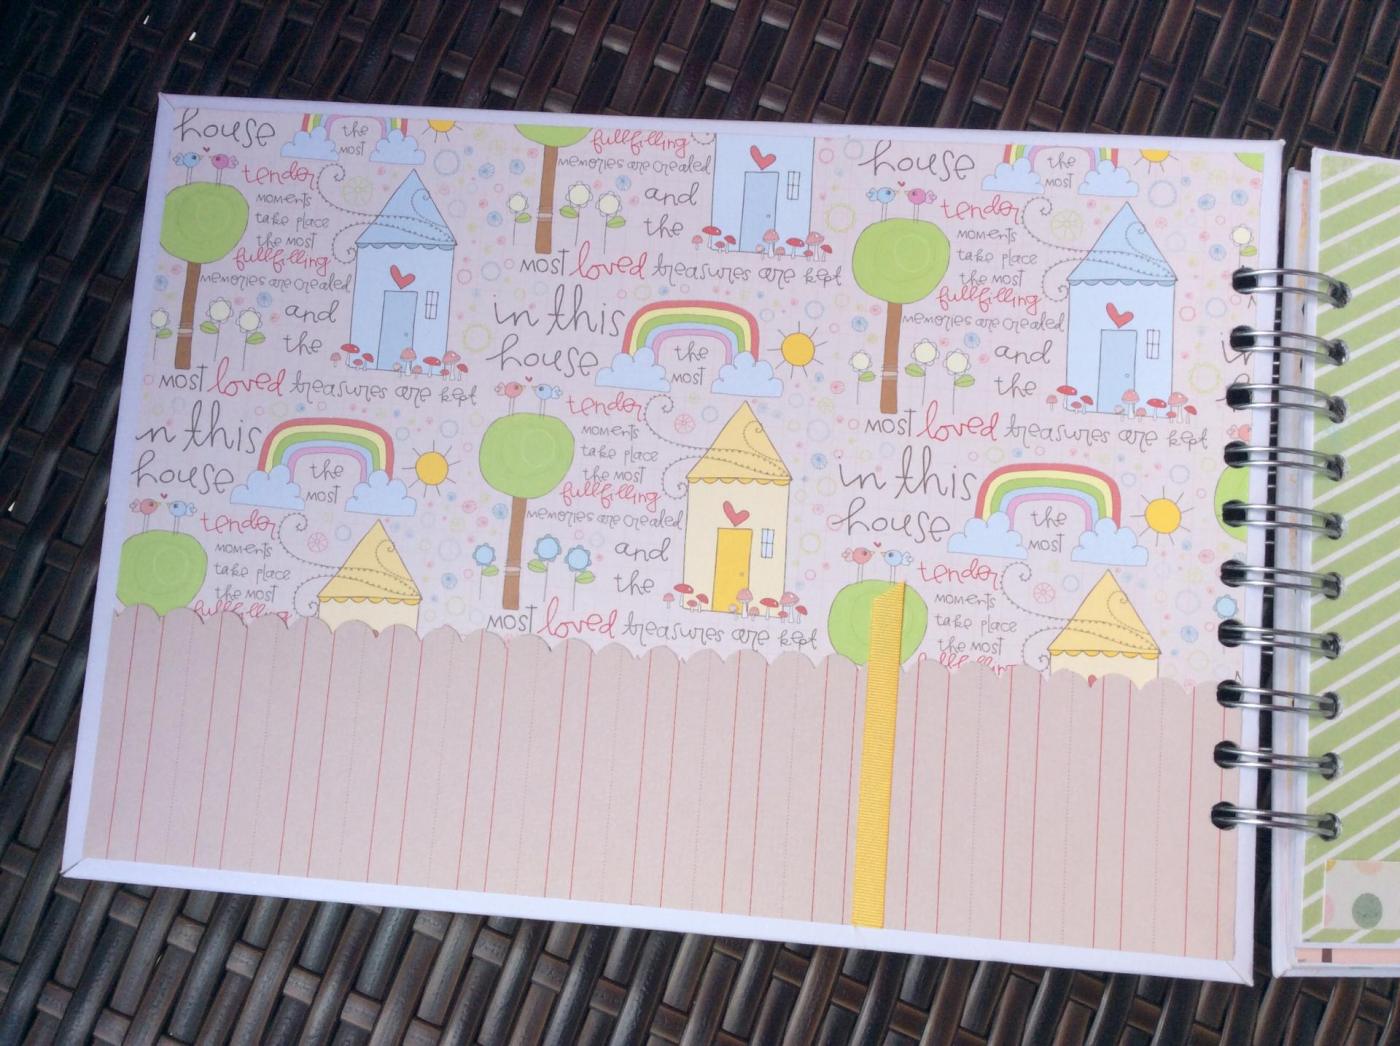 house
the
most
tender
moments
take place
the most
fullfilling
memories are created
and
the
most loved treasures are kept
in this
house
the
most
tender
moments
take place
the most
fullfilling
fullfilling
memories are created
and
the
most loved treasures are kept
in this
house
the
most
tender
moments
take place
the most
fullfilling
memories are created
and
the
most loved treasures are kept
house
the
most
tender
moments
take place
the most
fullfilling
memories are created
and
the
most loved treasures are kept
in this
house
the
most
tender
moments
take place
the most